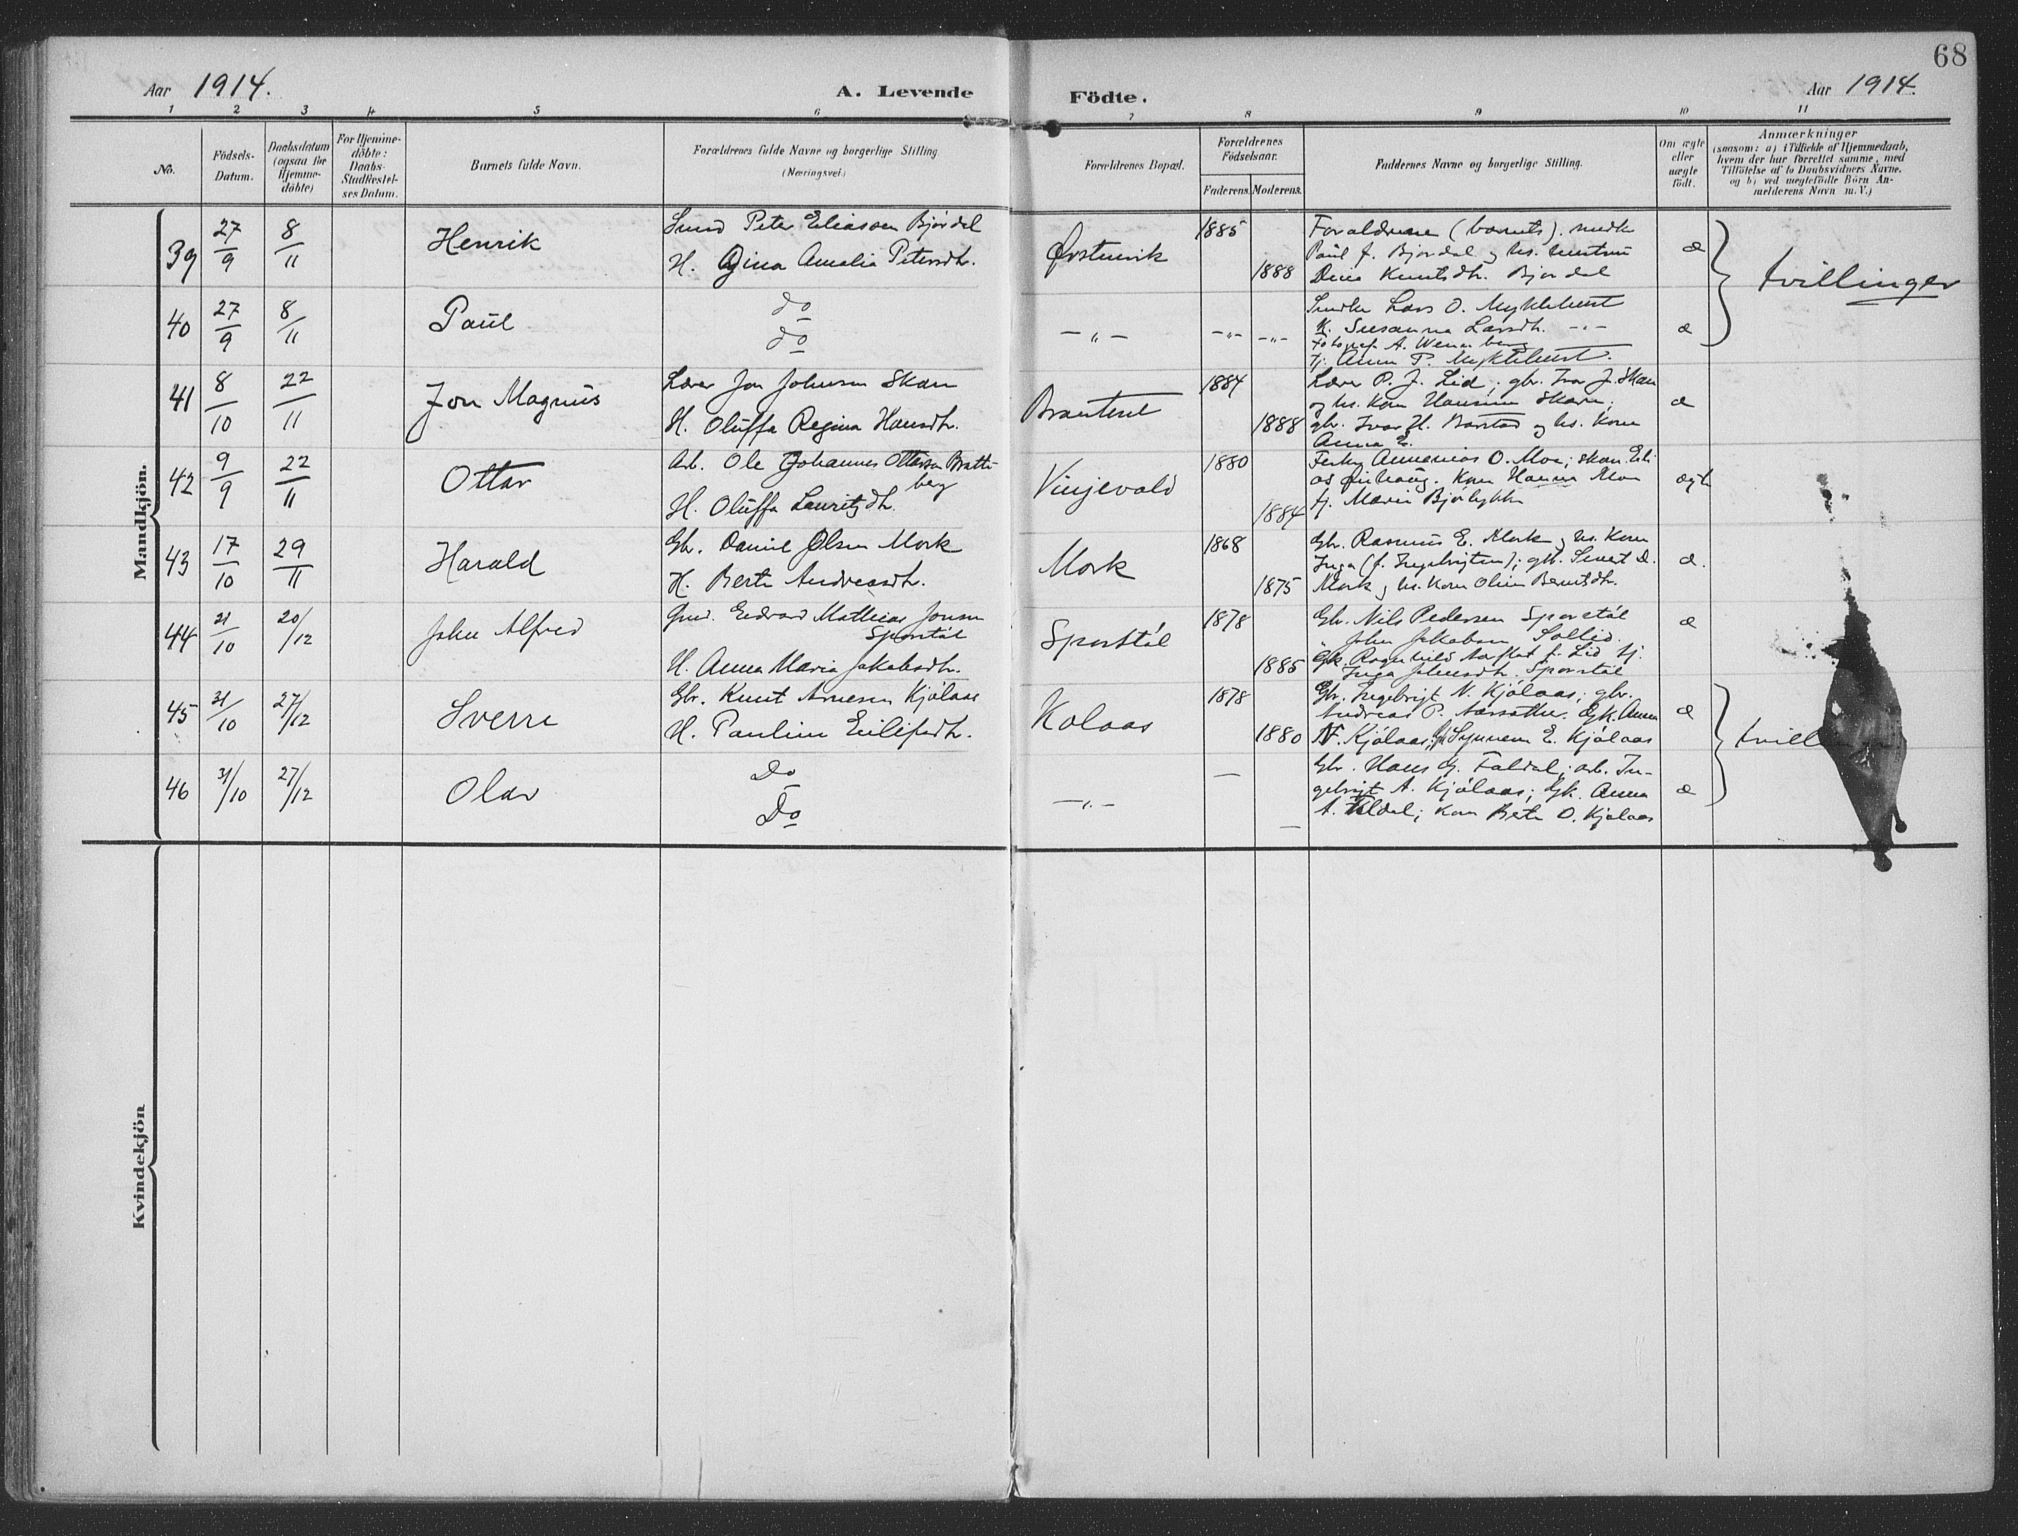 68
Aar 1914.
A. Levende
Födte.
Aar 1914.
1 2 3 4 5 6 7 8 9 10 11
No.
Födsels-
Datum.
Daabsdatum
(ogsaa for
Hjemme-
döbte)
For Hjemme-
döbte:
Daabs-
Stadfæstel-
ses Datum.
Barnets fulde Navn.
Forældrenes fulde Navne og borgerlige Stilling
(Næringsvei.)
Forældrenes Bopæl.
Forældrenes
Födselsaar.
Faderens. Moderens.
Faddernes Navne og borgerlige Stilling.
Om ægte
eller
uægte
födt.
Anmærkninger
(saasom: a) i Tilfælde af Hjemmedaab,
hvem der har forrettet samme, med
Tilföielse af to Daabsvidners Navne.
og b) ved uægtefödte Börn An-
melderens Navn m. V.)
Mandkjön.
39 27/9 8/11 Henrik
Smed Peter Eliassen Bjørdal
H. Gina Amalia Petersdtr.
Ørstenvik
1885
1888
Forældrene (barnets). smedk
Paul J. Bjørdal og hs. hustru
Dina Knutsdtr. Bjørdal
æ
tvillinger
40 27/9 8/11 Paul
do
do
— „ —
Smedk Lars O. Myklebust
K. Susanna Larsdtr. -„-
Fotograf A. Wennberg
Pj. Anna P. Myklebust.
æ
41 8/10 22/11 Jon Magnus
Lærer Jon Johnsen Skaar
H. Oluffa Regina Hansdtr.
1884
1888
Lærer P. J. Lid; gbr. Ivar J. Skaar
og hs. Kone Hansine Skaar;
gbr. Ivar H. Barstad og hs. Kone
Anna E.
æ
42 9/9 22/11 Ottar
Arb. Ole Johannes Ottesen Bratte-
berg
H. Oluffa Lauritzdtr.
Vinjevold
1880
1884
O. Moe; skom. Eli-
as
Kone Hanna Moe
pj. Marie Bjørlykke
ægte
43 17/10 29/11 Harald
Gbr. Daniel Olsen Mork
H. Berte Andreasdtr.
Mork
1868
1875
Gbr. Rasmus E. Mork og hs. Kone
Inga (f. Ingebrigtsen); gbr. Sivert D.
Mork og hs. Kone Oline Berntsdtr.
æ.
44 21/10 20/12 John Alfred
Gmd. Edvard Mathias Jonsen
Sporstøl
H. Anna Maria Jakobsdtr.
Sporstøl
1878
1885
Gbr. Nils Pedersen Sporstøl
John Jakobsen Sollid.
Gk. Ragnhild Aarflot f. Lid pj
Inga Johnsdtr. Sporstøl
æ
45 31/10 27/12 Sverre
Gbr. Knut Arnesen Kjølaas
H. Pauline Eilifsdtr.
Kolaas
1878
1880
Gbr. Ingebrigt N. Kjølaas; gbr.
Andreas P. Aarsæther. Gk. Anna
N. Kjølaas; pj Synneva E. Kjølaas
æ
46 31/10 27/12 Olav
Do
Do
— „ —
Gbr. Hans G. Faldal; arb. In-
gebrigt A. Kjølaas; Gk. Anna
A. Faldal; Kone Berte O. Kjølaas
æ
Kvindekjön